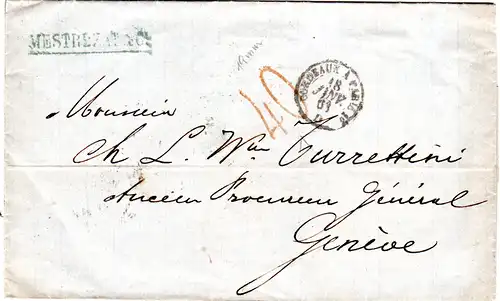 MESTREZAT & Cº
40
BORDEAUX A PARIS
18
JANV
61
Monsieur
Ch L. Wm Turrettini
Ancien Procureur Général
Genève